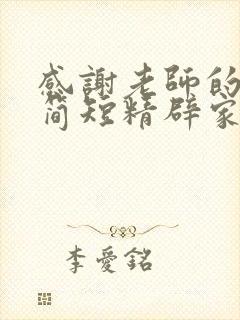 感謝老師的
简短精辟家
李愛銘